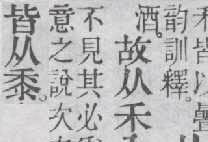 皆以疊
韻訓釋。
酒。故从禾
不見其必
意之說次
皆从黍。